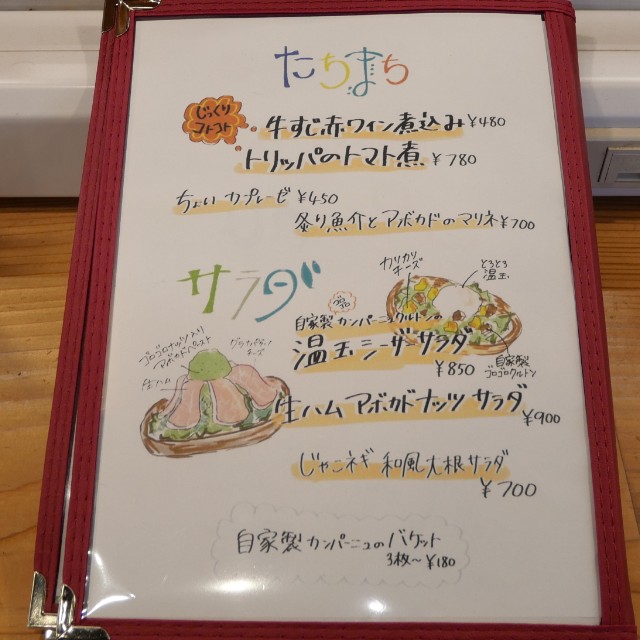 たちまち
じっくり
コトコト
牛すじ赤ワイン煮込み ¥480
トリッパのトマト煮 ¥780
ちょいカプレーゼ ¥450
炙り魚介とアボカドのマリネ ¥700
サラダ
カリカリ
チーズ
とろとろ
温玉
自家製カンパーニュクルトンの
温玉シーザーサラダ
¥850
自家製
ゴロゴロクルトン
ゴロゴロナッツ入り
アボカドペースト
チーズ
生ハム
生ハムアボカドナッツサラダ
¥900
じゃこネギ 和風大根サラダ
¥700
自家製カンパーニュのバケット
3枚〜¥180